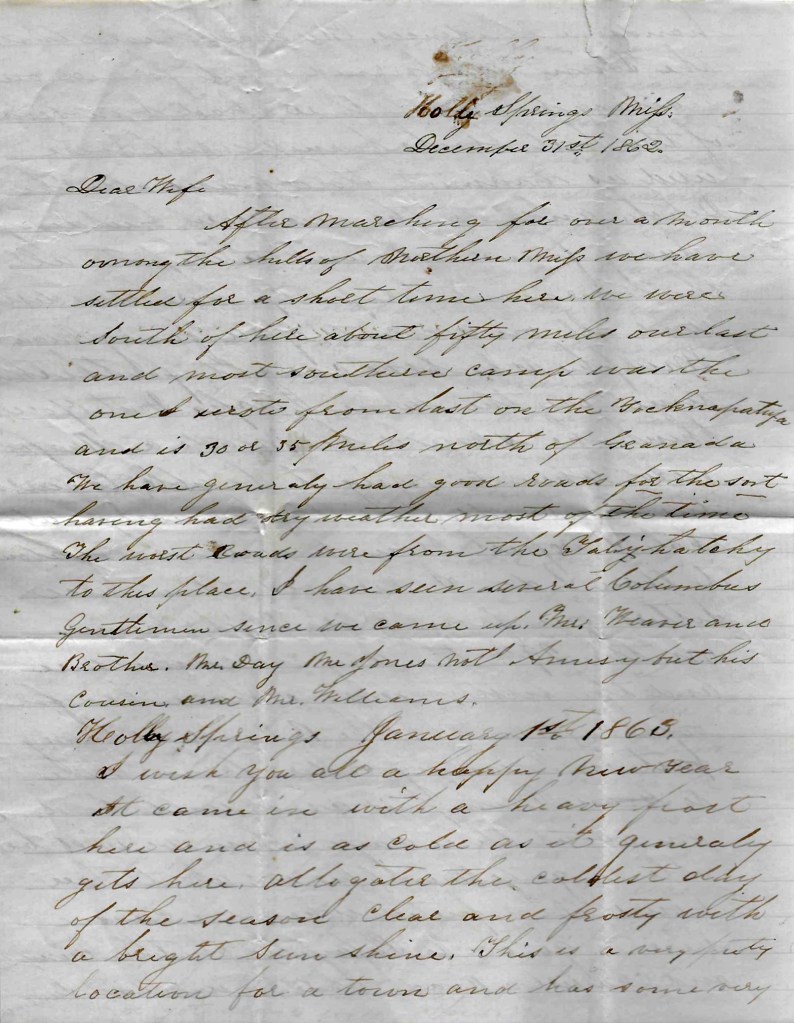 Holly Springs Miss.
December 31st, 1862.
Dear Wife
After marching for over a month
among the hills of Northern Miss we have
settled for a short time here. we were
South of here about fifty miles our last
and most southern camp was the
one I wrote from last on the Yocknapatafa
and is 30 or 35 Miles north of Granada
We have generaly had good roads for the sort
having had dry weather most of the time
The worst roads were from the Talyhatchy
to this place. I have seen several Columbus
Gentlemen since we came up. Mr. Weaver and
Brother. Mr. Day Mr Jones not but his
Cousin and Mr. Williams.
Holly Springs January 1st. 1863.
I wish you all a happy New Year
It came in with a heavy frost
here and is as cold as it generaly
gets here. allogater the coldest day
of the season clear and frosty with
a bright Sun shine. This is a very prity
location for a town and has some very